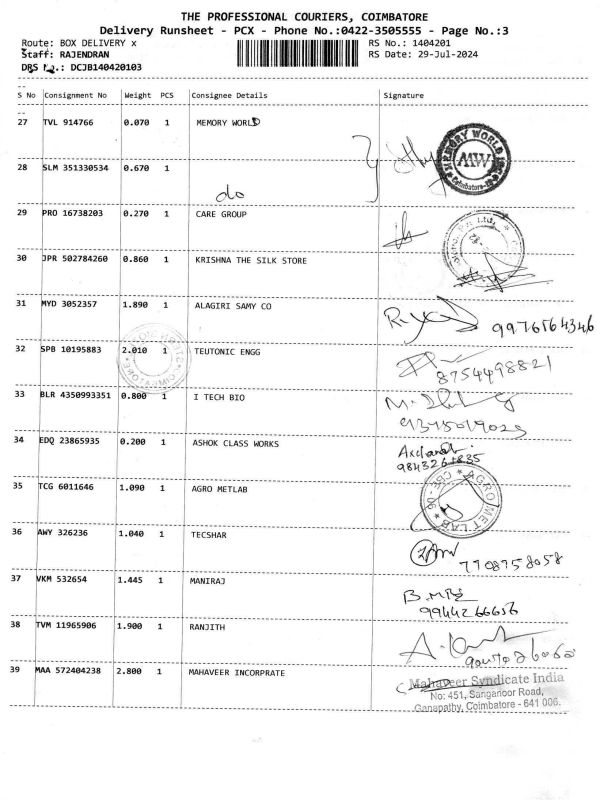 THE PROFESSIONAL COURIERS, COIMBATORE
Delivery Runsheet - PCX - Phone No.:0422-3505555 - Page No.:3
Route: BOX DELIVERY x RS No.: 1404201
Staff: RAJENDRAN RS Date: 29-Jul-2024
DRS No.: DCJB140420103
S No Consignment No Weight PCS Consignee Details Signature
27 TVL 914766 0.070 1 MEMORY WORLD
MEMORY WORLD
MW
Coimbatore
28 SLM 351330534 0.670 1
do
29 PRO 16738203 0.270 1 CARE GROUP
30 JPR 502784260 0.860 1 KRISHNA THE SILK STORE
31 MYD 3052357 1.890 1 ALAGIRI SAMY CO
9976564346
32 SPB 10195883 2.010 1 TEUTONIC ENGG
8754498821
33 BLR 4350993351 0.800 1 I TECH BIO
34 EDQ 23865935 0.200 1 ASHOK CLASS WORKS
35 TCG 6011646 1.090 1 AGRO METLAB
AGRO METLAB CBE - 06
36 AWY 326236 1.040 1 TECSHAR
7708758058
37 VKM 532654 1.445 1 MANIRAJ
9944266656
38 TVM 11965906 1.900 1 RANJITH
39 MAA 572404238 2.800 1 MAHAVEER INCORPRATE
Mahaveer Syndicate India
No: 451, Sanganoor Road,
Ganapathy, Coimbatore - 641 006.